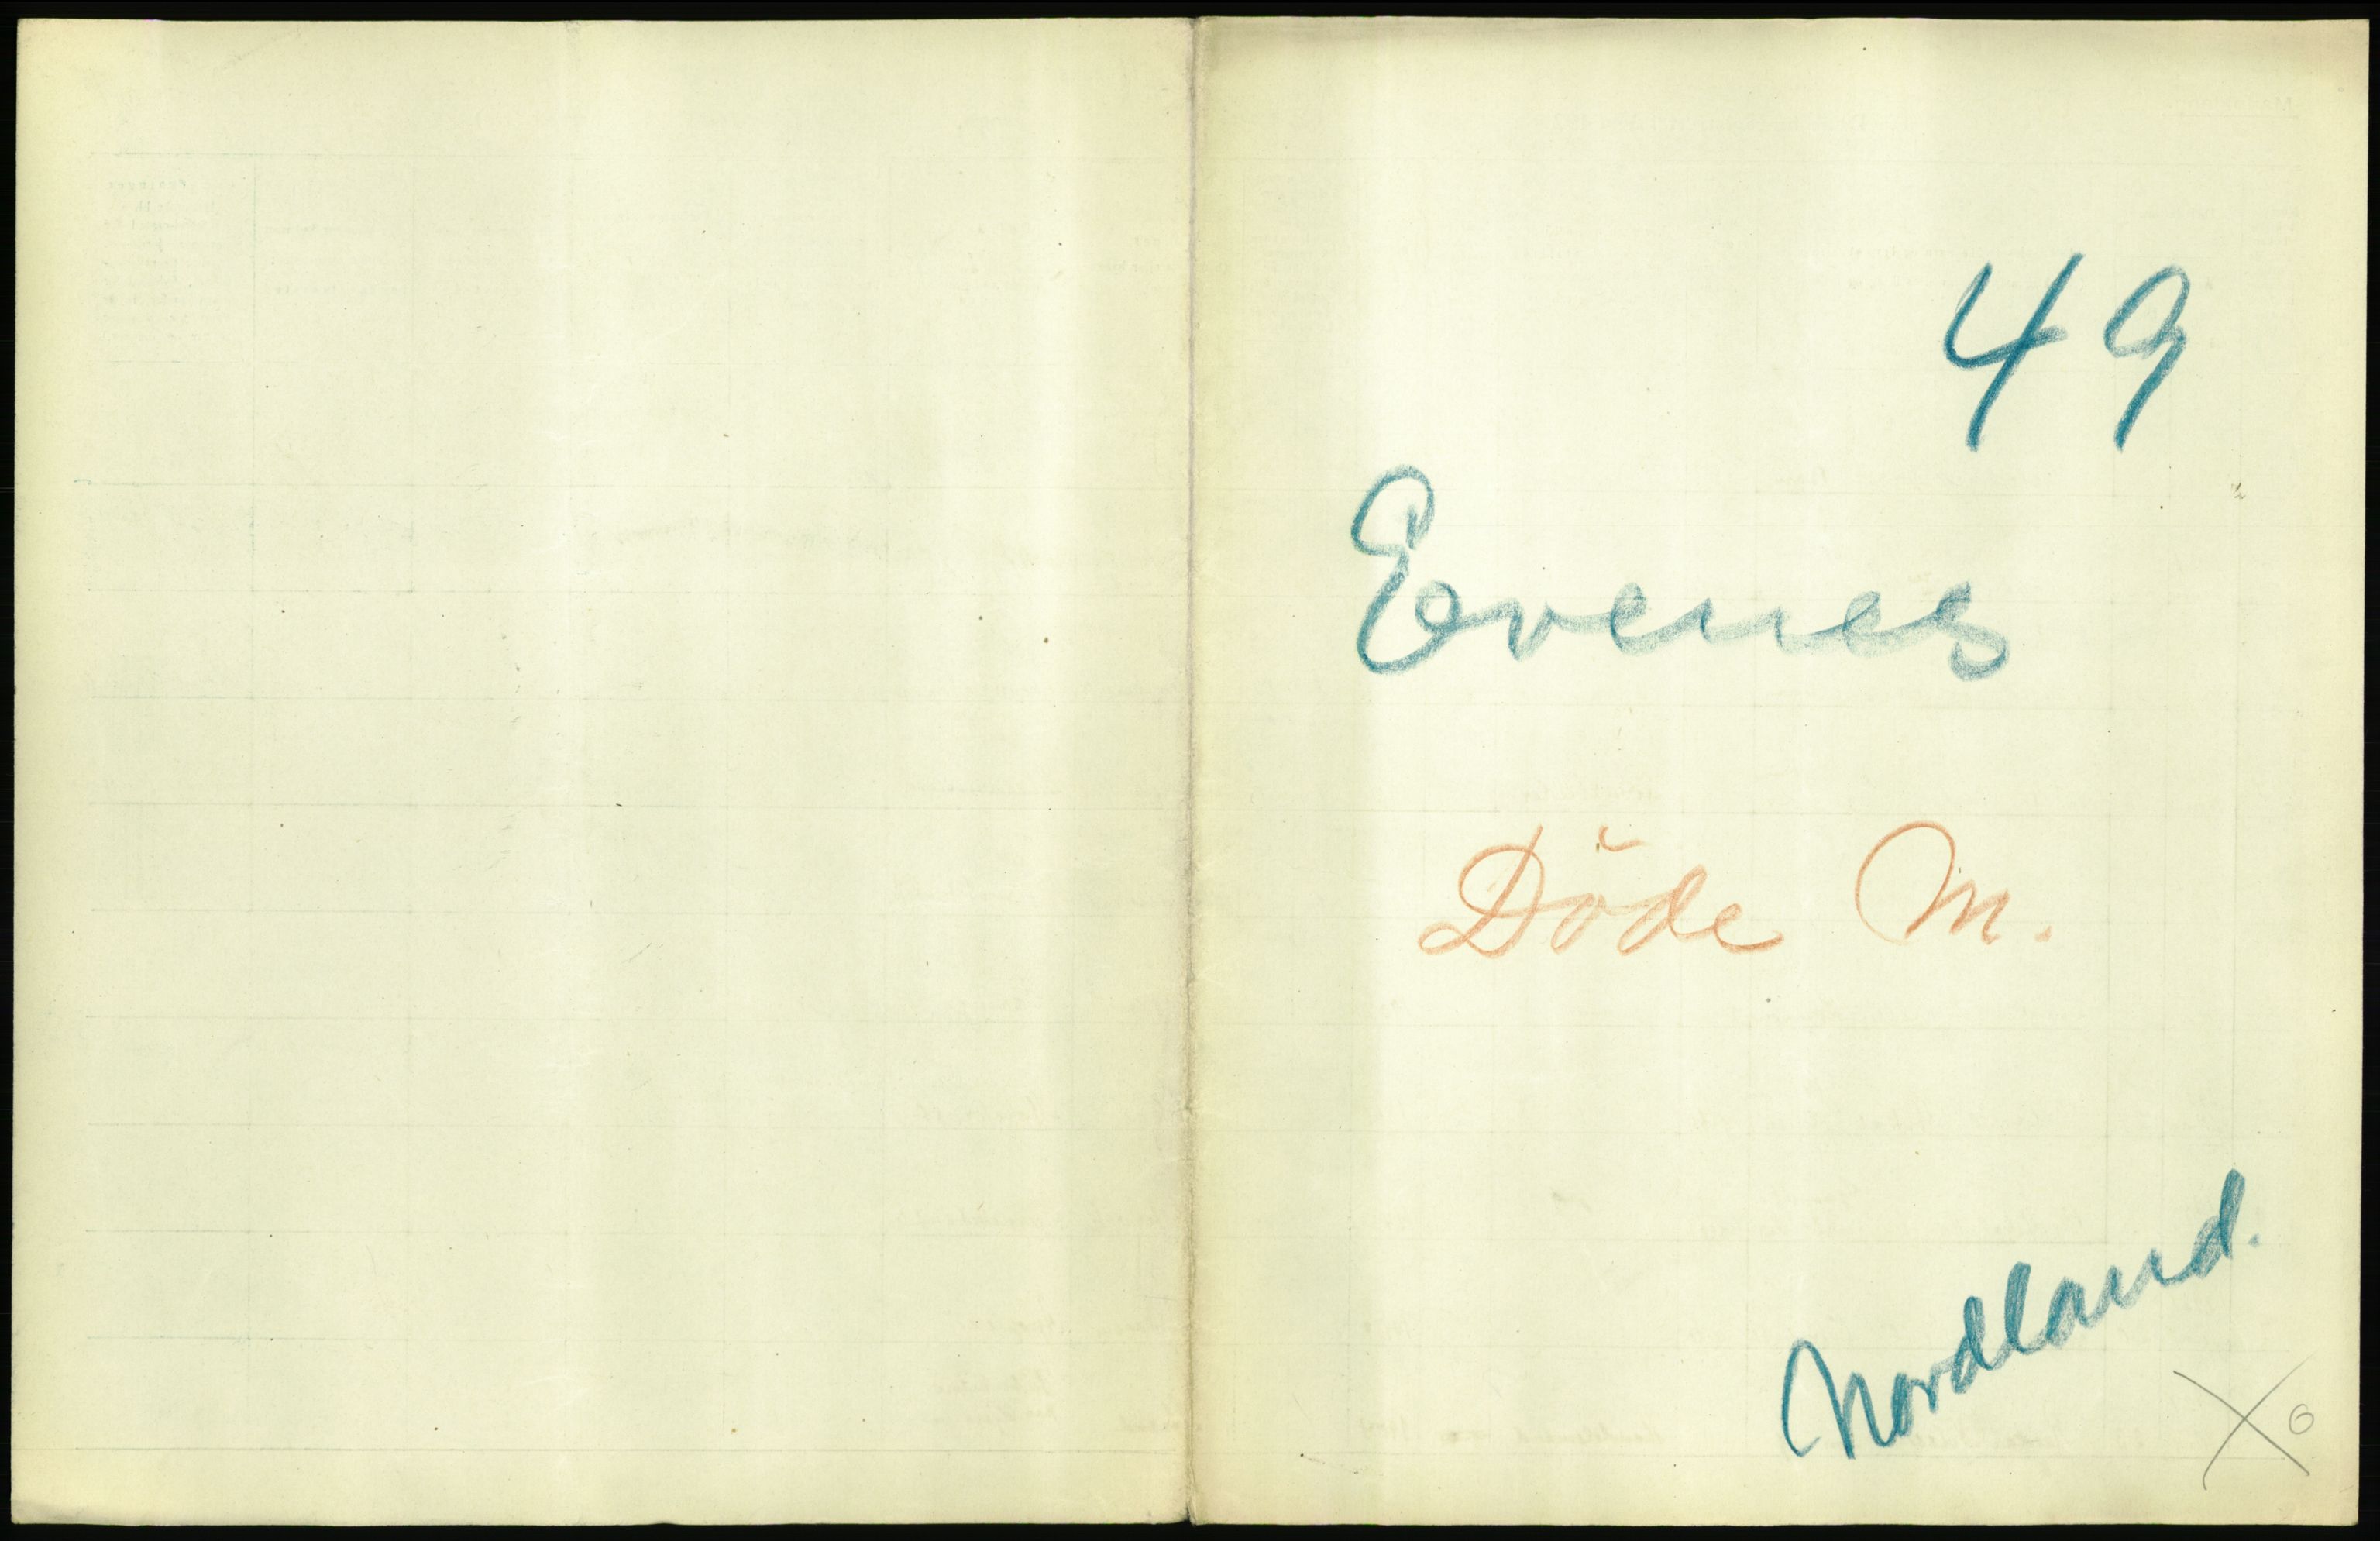 49
Evenes
Döde M.
Nordland.